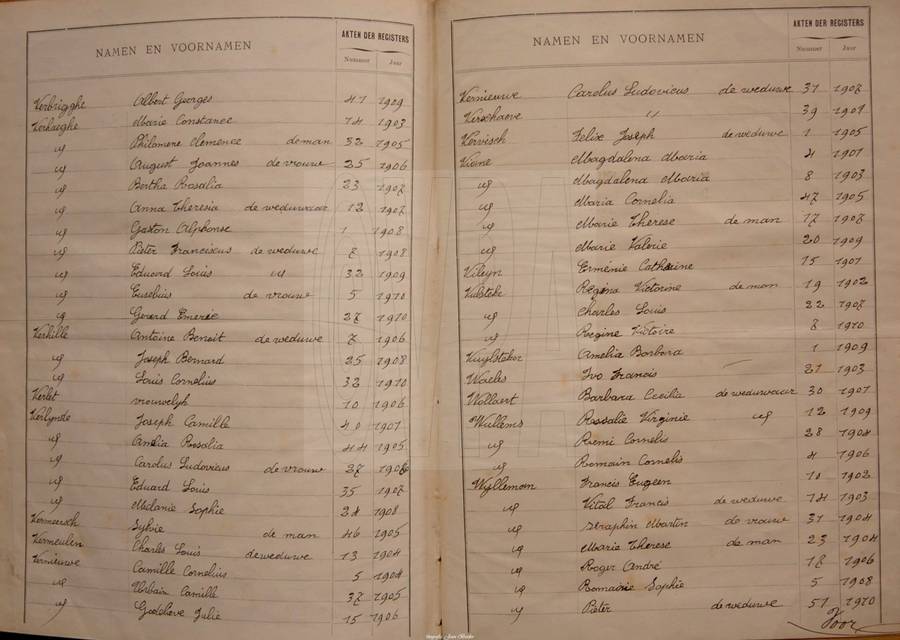 NAMEN EN VOORNAMEN AKTEN DER REGISTERS
Nummer Jaar
Verbrigghe Albert Georges 41 1909
Verhaeghe Marie Constance 14 1903
id Philomene Clemence de man 32 1905
id August Joannes de vrouw 25 1906
id Bertha Rosalia 23 1907
id Anna Theresia de weduwaar 12 1907
id Gaston Alphonse 1 1908
id Pieter Franciscus de weduwe 7 1908
id Eduard Louis id 32 1909
id Eusebius de vrouw 5 1910
id Gerard Emerie 27 1910
Verhille Antoine Benoit de weduwe 7 1906
id Joseph Bernard 25 1908
id Louis Cornelius 32 1910
Verlet vrouwelyk 10 1906
Verlynde Joseph Camille 40 1901
id Amelia Rosalia 44 1905
id Carolus Ludovicus de vrouw 27 1906
id Eduard Louis 35 1907
id Melanie Sophie 24 1908
Vermaesch Sylvie de man 46 1905
Vermeulen Charles Louis de weduwe 13 1904
Vernieuwe Camille Cornelius 5 1904
id Urbain Camille 37 1905
id Godelieve Julie 15 1906
NAMEN EN VOORNAMEN AKTEN DER REGISTERS
Nummer Jaar
Vernieuwe Carolus Ludovicus de weduwe 31 1907
Verschaeve " 39 1901
Vervisch Felix Joseph de weduwe 1 1905
Viane Magdalena Maria 4 1901
id Magdalena Maria 8 1903
id Maria Cornelia 47 1905
id Marie Therese de man 17 1907
id Marie Valerie 20 1909
Vileyn Erménie Cathérine 15 1901
Vulsteke Regina Victorine de man 19 1902
id Charles Louis 22 1907
id Regine Victoire 8 1910
Vuylsteker Amelia Barbara 1 1909
Waeles Ivo Francis 21 1903
Wollaert Barbara Cecilia de weduwaar 30 1901
Wullems Rosalie Virginie id 12 1909
id Remi Cornelis 28 1904
id Romain Cornelis 4 1906
Wylleman Francis Eugeen 10 1902
id Vital Francis de weduwe 14 1903
id Seraphin Martin de vrouw 31 1904
id Marie Therese de man 23 1904
id Roger André 18 1906
id Romanie Sophie 5 1908
id Pieter de weduwe 51 1910
Voor